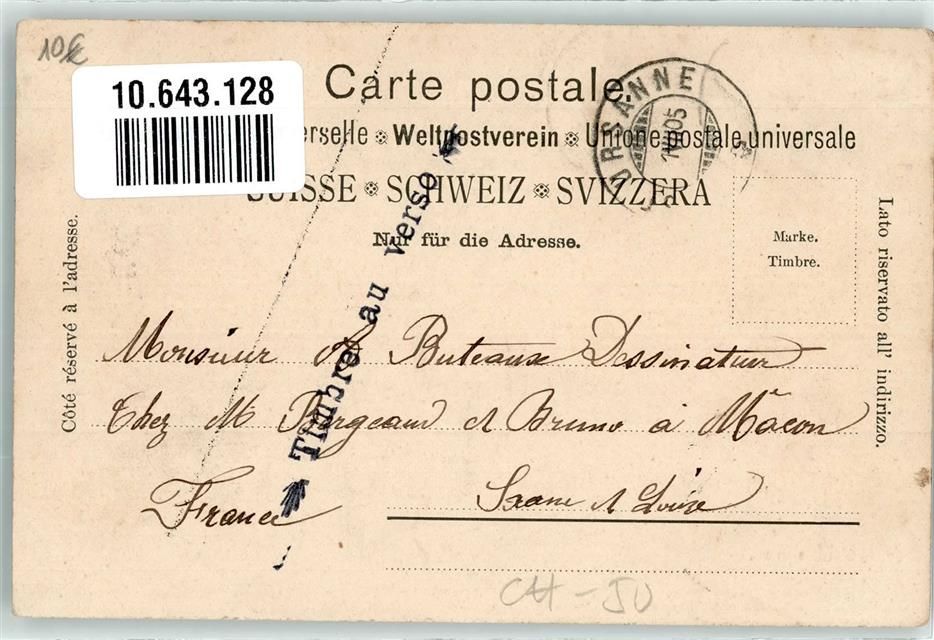 10€
10.643.128
Carte postale.
erselle Weltpostverein Unione postale universale
SUISSE SCHWEIZ SVIZZERA
Nur für die Adresse.
URSANNE
05
Marke.
Timbre.
Côté réservé à l'adresse.
Lato riservato all' indirizzo.
Timbre au verso
Monsieur A Buteaux Dessinateur
Chez M Borgeaud et Bruno à Mâcon
France Saone et Loire
CH - JU